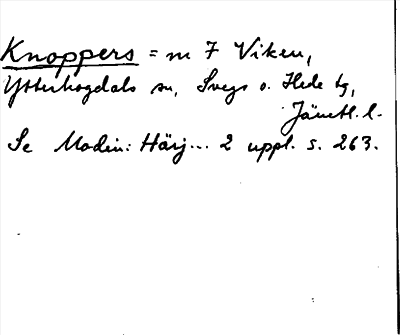 Knoppers = m 7 Viken,
Ytterhogdals sn, Svegs o. Hede tg,
Jämtl. l.
Se Modin: Härj... 2 uppl. s. 263.